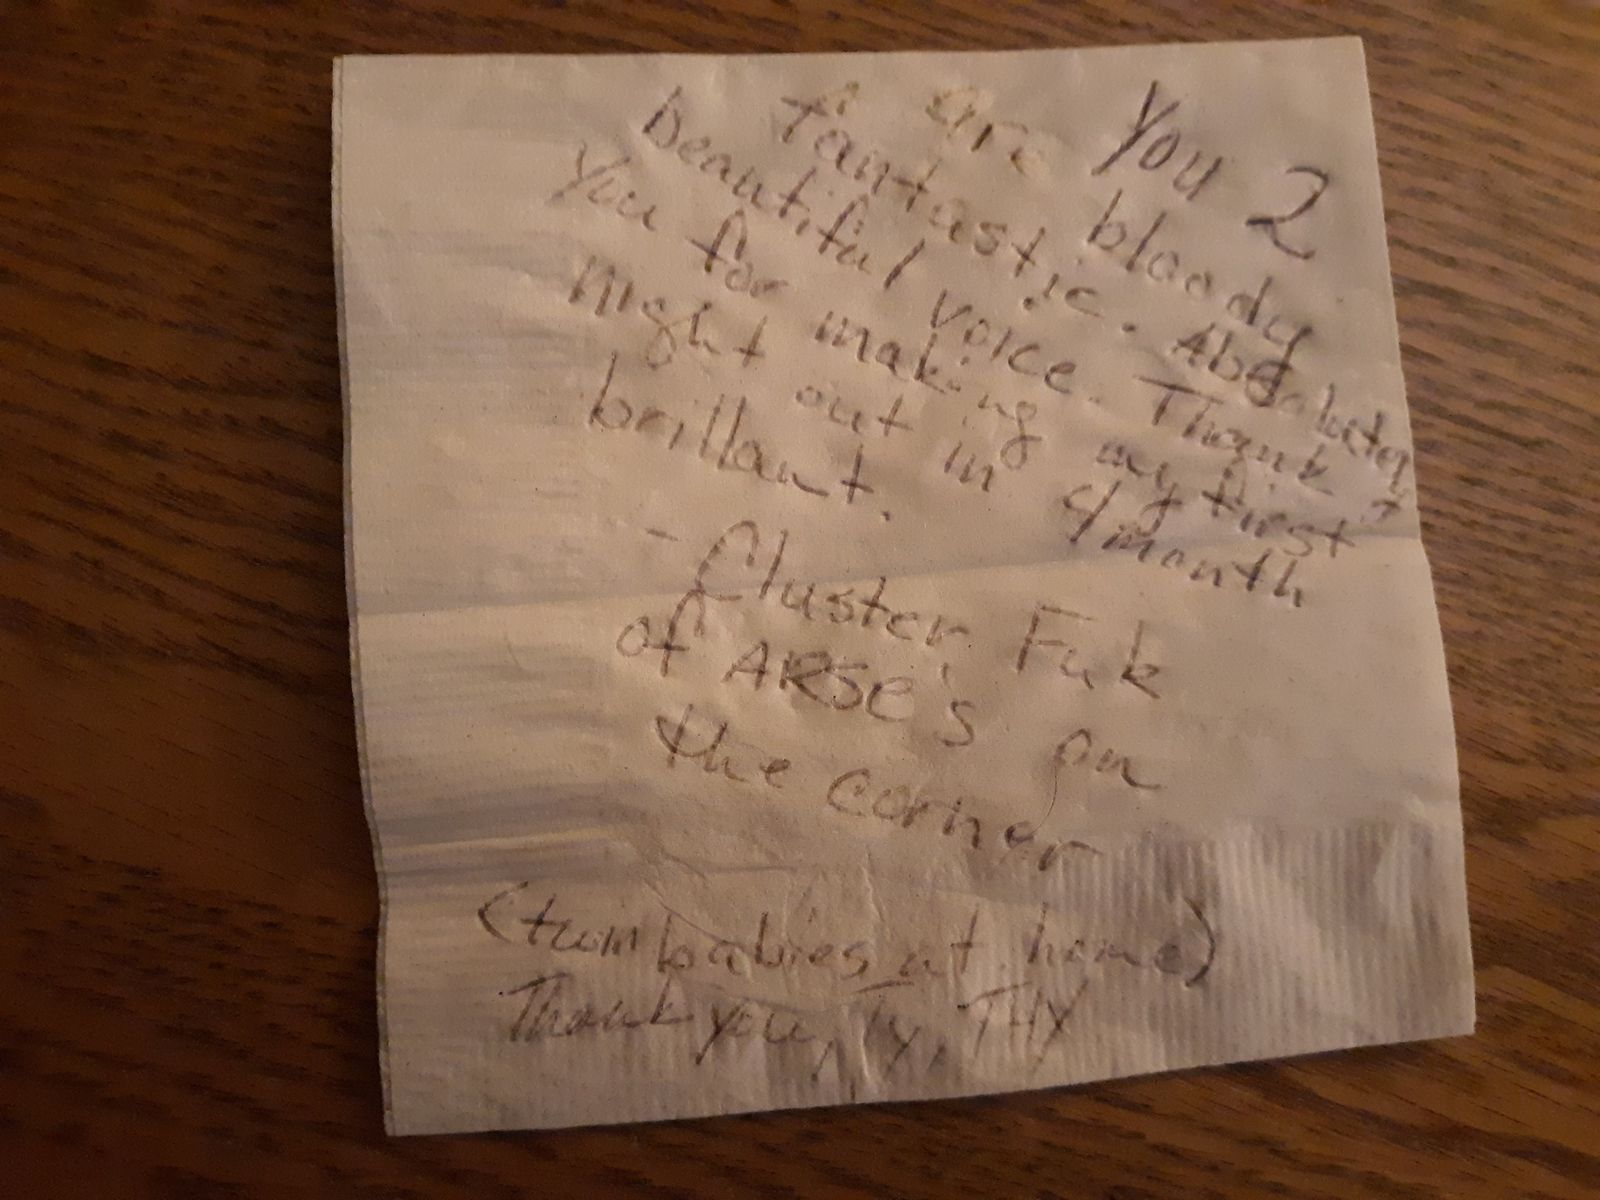 You 2
are bloody
fantastic. Absolutely
beautiful voice. Thank
you for making my first
night out in 4 month
brillant.
- Cluster Fuk
of ARSE's on
the corner
(twin babies at home)
Thank you, Ty, THY